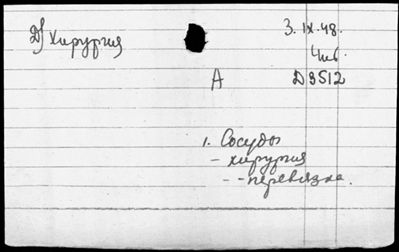 Хирургия
3.IX.48.
А
D 3512
1. Сосуды
- хирургия
- - перевязка.